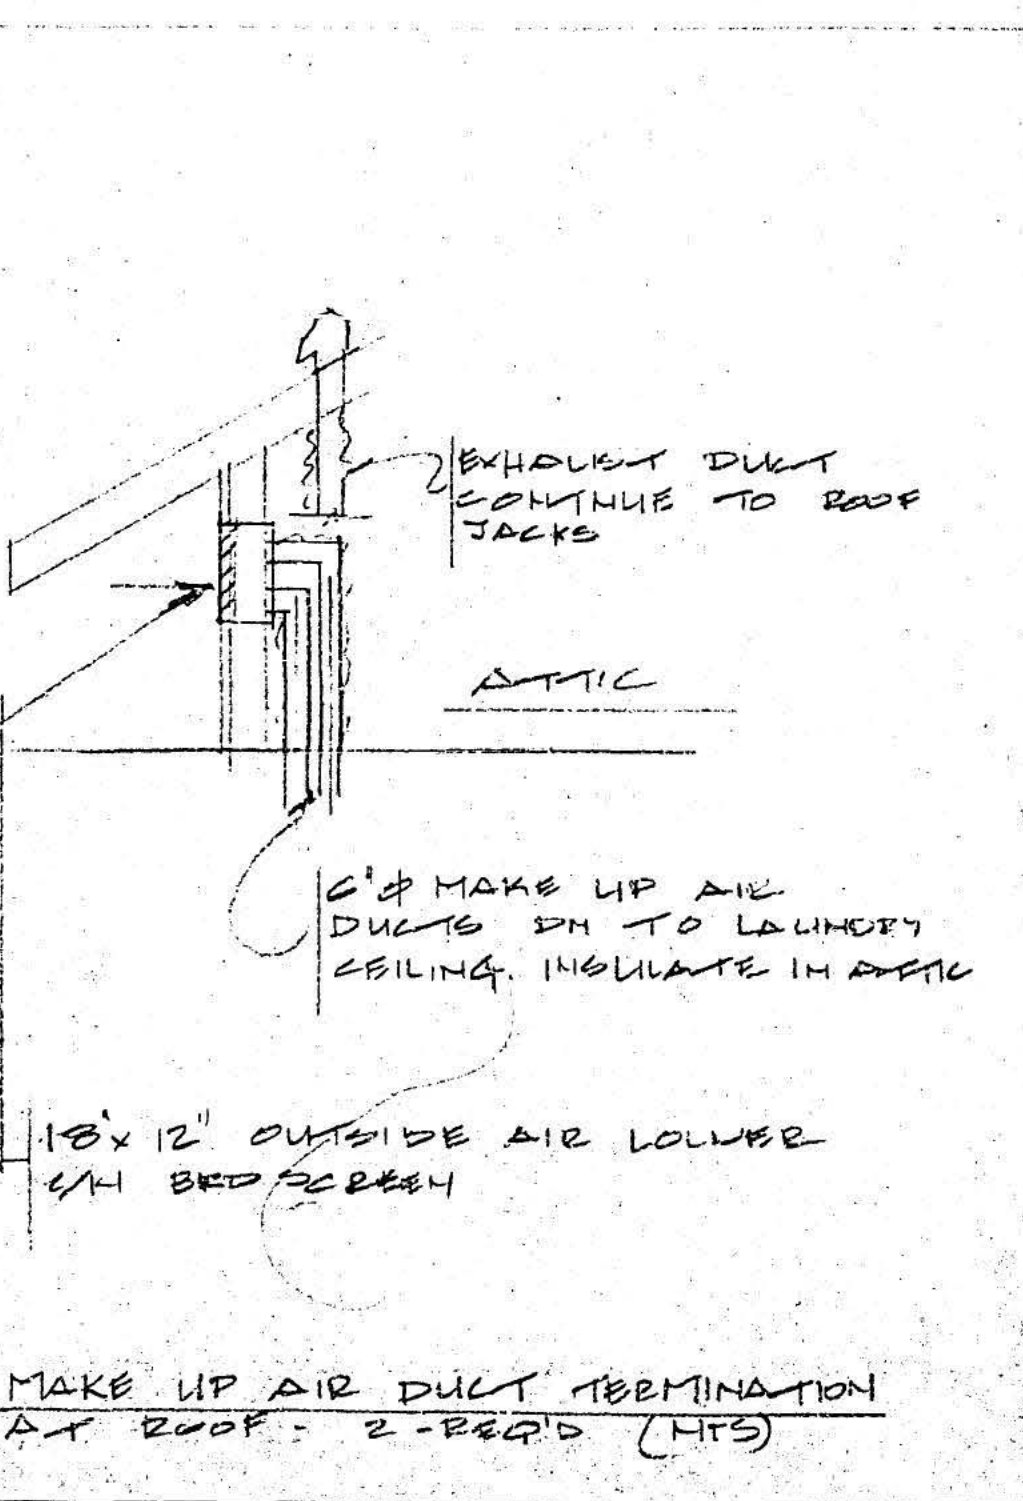 EXHAUST DUCT
CONTINUE TO ROOF
JACKS
ATTIC
6"φ MAKE UP AIR
DUCTS DN TO LAUNDRY
CEILING. INSULATE IN ATTIC
18"x 12" OUTSIDE AIR LOUVER
C/W BRD SCREEN
MAKE UP AIR DUCT TERMINATION
AT ROOF - 2 - REQ'D (NTS)